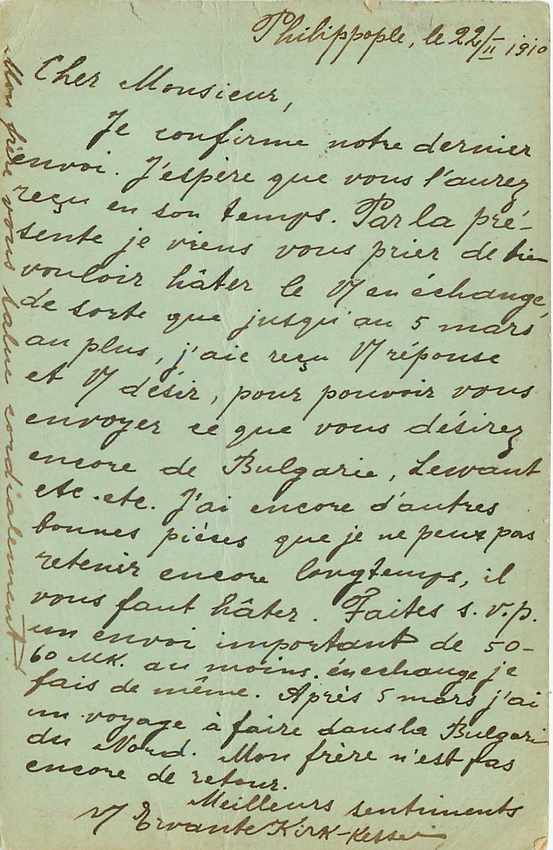 Philippople, le 22/II 1910
Cher Monsieur,
Je confirme notre dernier
envoi. J'espère que vous l'aurez
reçu en son temps. Par la pré-
sente je viens vous prier de bien
vouloir hâter le V/ en échange,
de sorte que jusqu'au 5 mars
au plus, j'aie reçu V/ réponse
et V/ désir, pour pouvoir vous
envoyer ce que vous désirez
encore de Bulgarie, Lewant
etc. etc. J'ai encore d'autres
bonnes pièses que je ne peux pas
retenir encore longtemps, il
vous faut hâter. Faites s.v.p.
un envoi important de 50-
60 MK. au moins. en echange je
fais de même. Après 5 mars j'ai
un voyage à faire dans la Bulgari
du Nord. Mon frère n'est pas
encore de retour.
Meilleurs sentiments
V/ Ervante Kirk-
Mon frère vous salue cordialement.